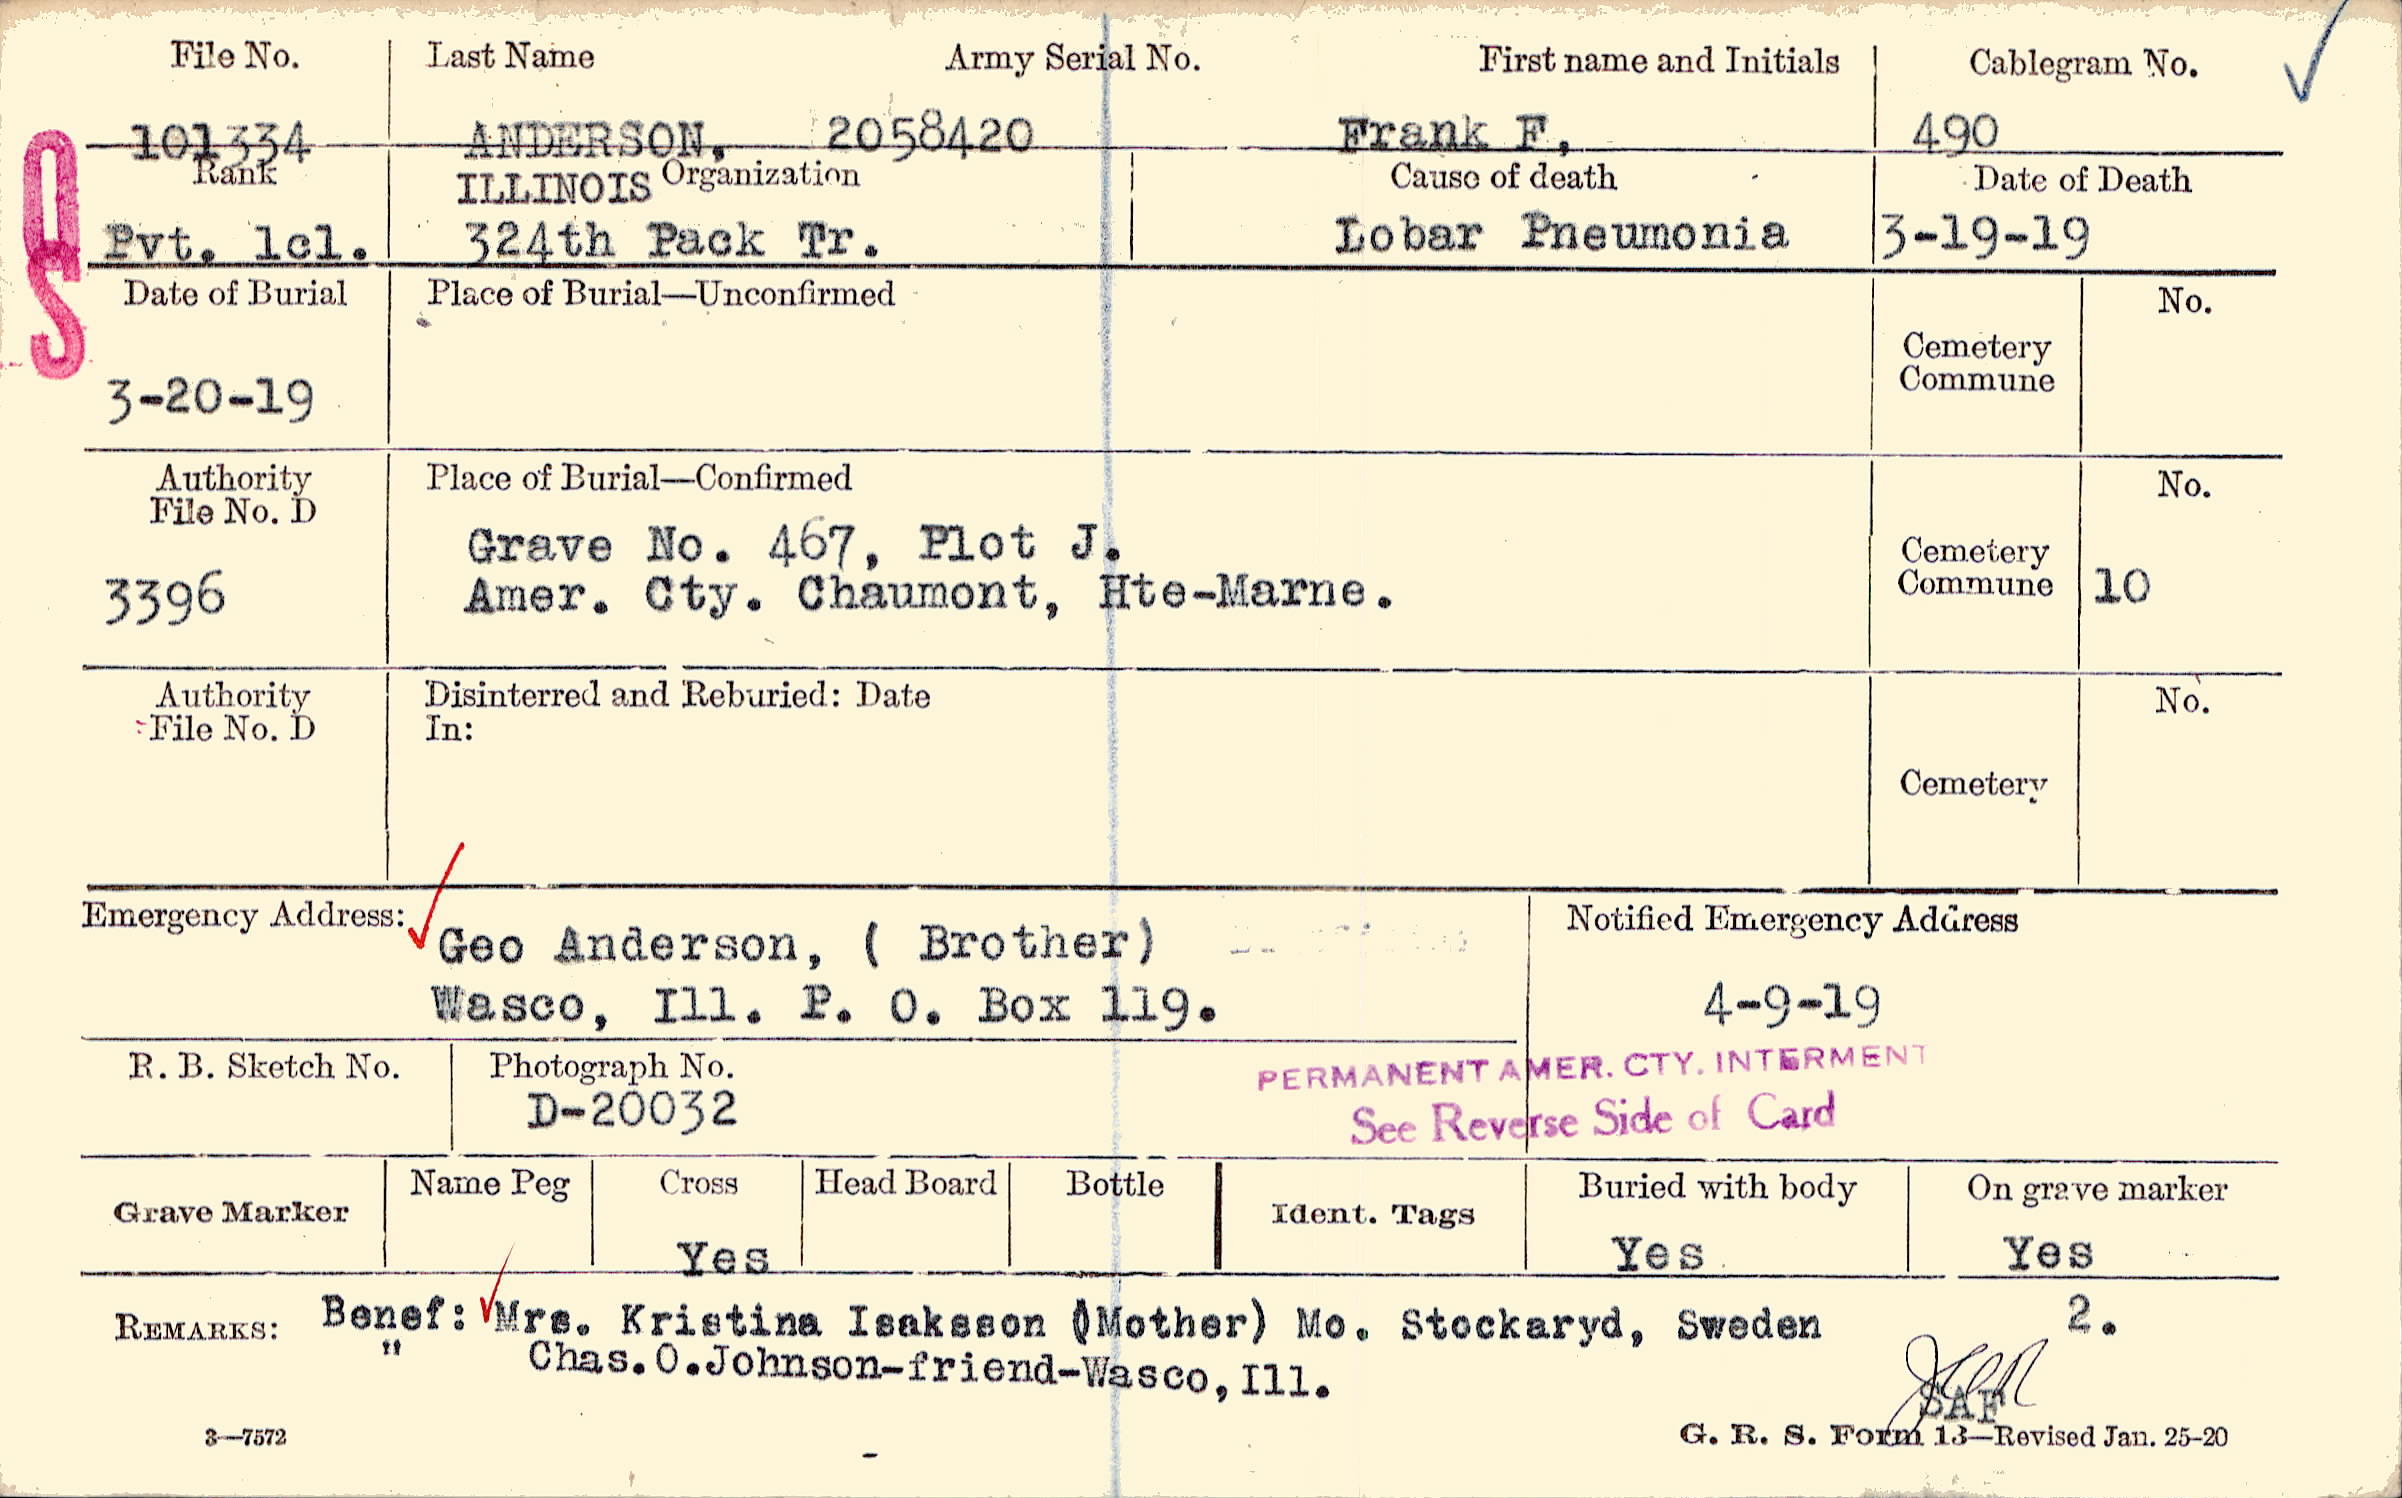 File No. Last Name Army Serial No. First name and Initials Cablegram No.
101334 ANDERSON, 2058420 Frank F, 490
Rank ILLINOIS Organization Cause of death Date of Death
Pvt. 1cl. 324th Pack Tr. Lobar Pneumonia 3-19-19
OS
Date of Burial Place of Burial—Unconfirmed No.
Cemetery
Commune
3-20-19
Authority Place of Burial—Confirmed No.
File No. D
Grave No. 467, Plot J.
Cemetery
3396 Amer. Cty. Chaumont, Hte-Marne. Commune 10
Authority Disinterred and Reburied: Date No.
File No. D In:
Cemetery
Emergency Address: Notified Emergency Address
Geo Anderson, ( Brother)
Wasco, Ill. P. O. Box 119. 4-9-19
R. B. Sketch No. Photograph No. PERMANENT AMER. CTY. INTERMENT
D-20032 See Reverse Side of Card
Grave Marker Name Peg Cross Head Board Bottle Ident. Tags Buried with body On grave marker
Yes Yes Yes
REMARKS: Benef: Mrs. Kristina Isaksson (Mother) Mo. Stockaryd, Sweden 2.
" Chas.O.Johnson-friend-Wasco,Ill.
SAF
3—7572 G. R. S. Form 13—Revised Jan. 25-20